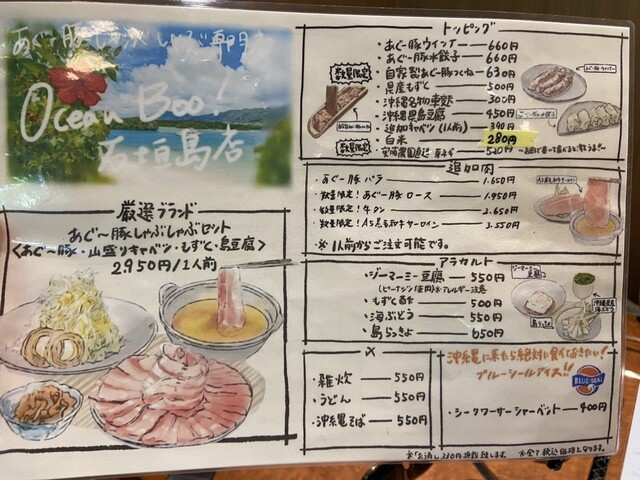 あぐー豚しゃぶしゃぶ専門店
Ocean Boo!
石垣島店
厳選ブランド
あぐ〜豚しゃぶしゃぶセット
<あぐ〜豚・山盛りキャベツ・もずく・島豆腐>
2950円/1人前
トッピング
・あぐー豚ウインナー 660円
・あぐー豚水餃子 660円
数量限定
・自家製あぐー豚つくね 630円
・県産もずく 500円
・沖縄名物車麩 300円
・沖縄県島豆腐 450円
・追加キャベツ(1人前) 390円
数量限定
・白米 280円
520円
追加肉
・あぐー豚バラ 1.650円
・数量限定!あぐー豚ロース 1.950円
・数量限定!牛タン 2.650円
・数量限定!A5黒毛和牛サーロイン 3.550円
※1人前からご注文可能です。
アラカルト
・ジーマーミー豆腐 550円
(ピーナッツ使用)※アレルギー注意
・もずく酢 500円
・海ぶどう 550円
・島らっきょ 650円
ジーマーミー豆腐
島らっきょ
沖縄県産海ぶどう
〆
・雑炊 550円
・うどん 550円
・沖縄そば 550円
沖縄に来たら絶対に食べておきたい!
ブルーシールアイス!!
BLUE SEAL
・シークワーサーシャーベット 400円
※お通し330円頂戴致します。
※全て税込価格となります。